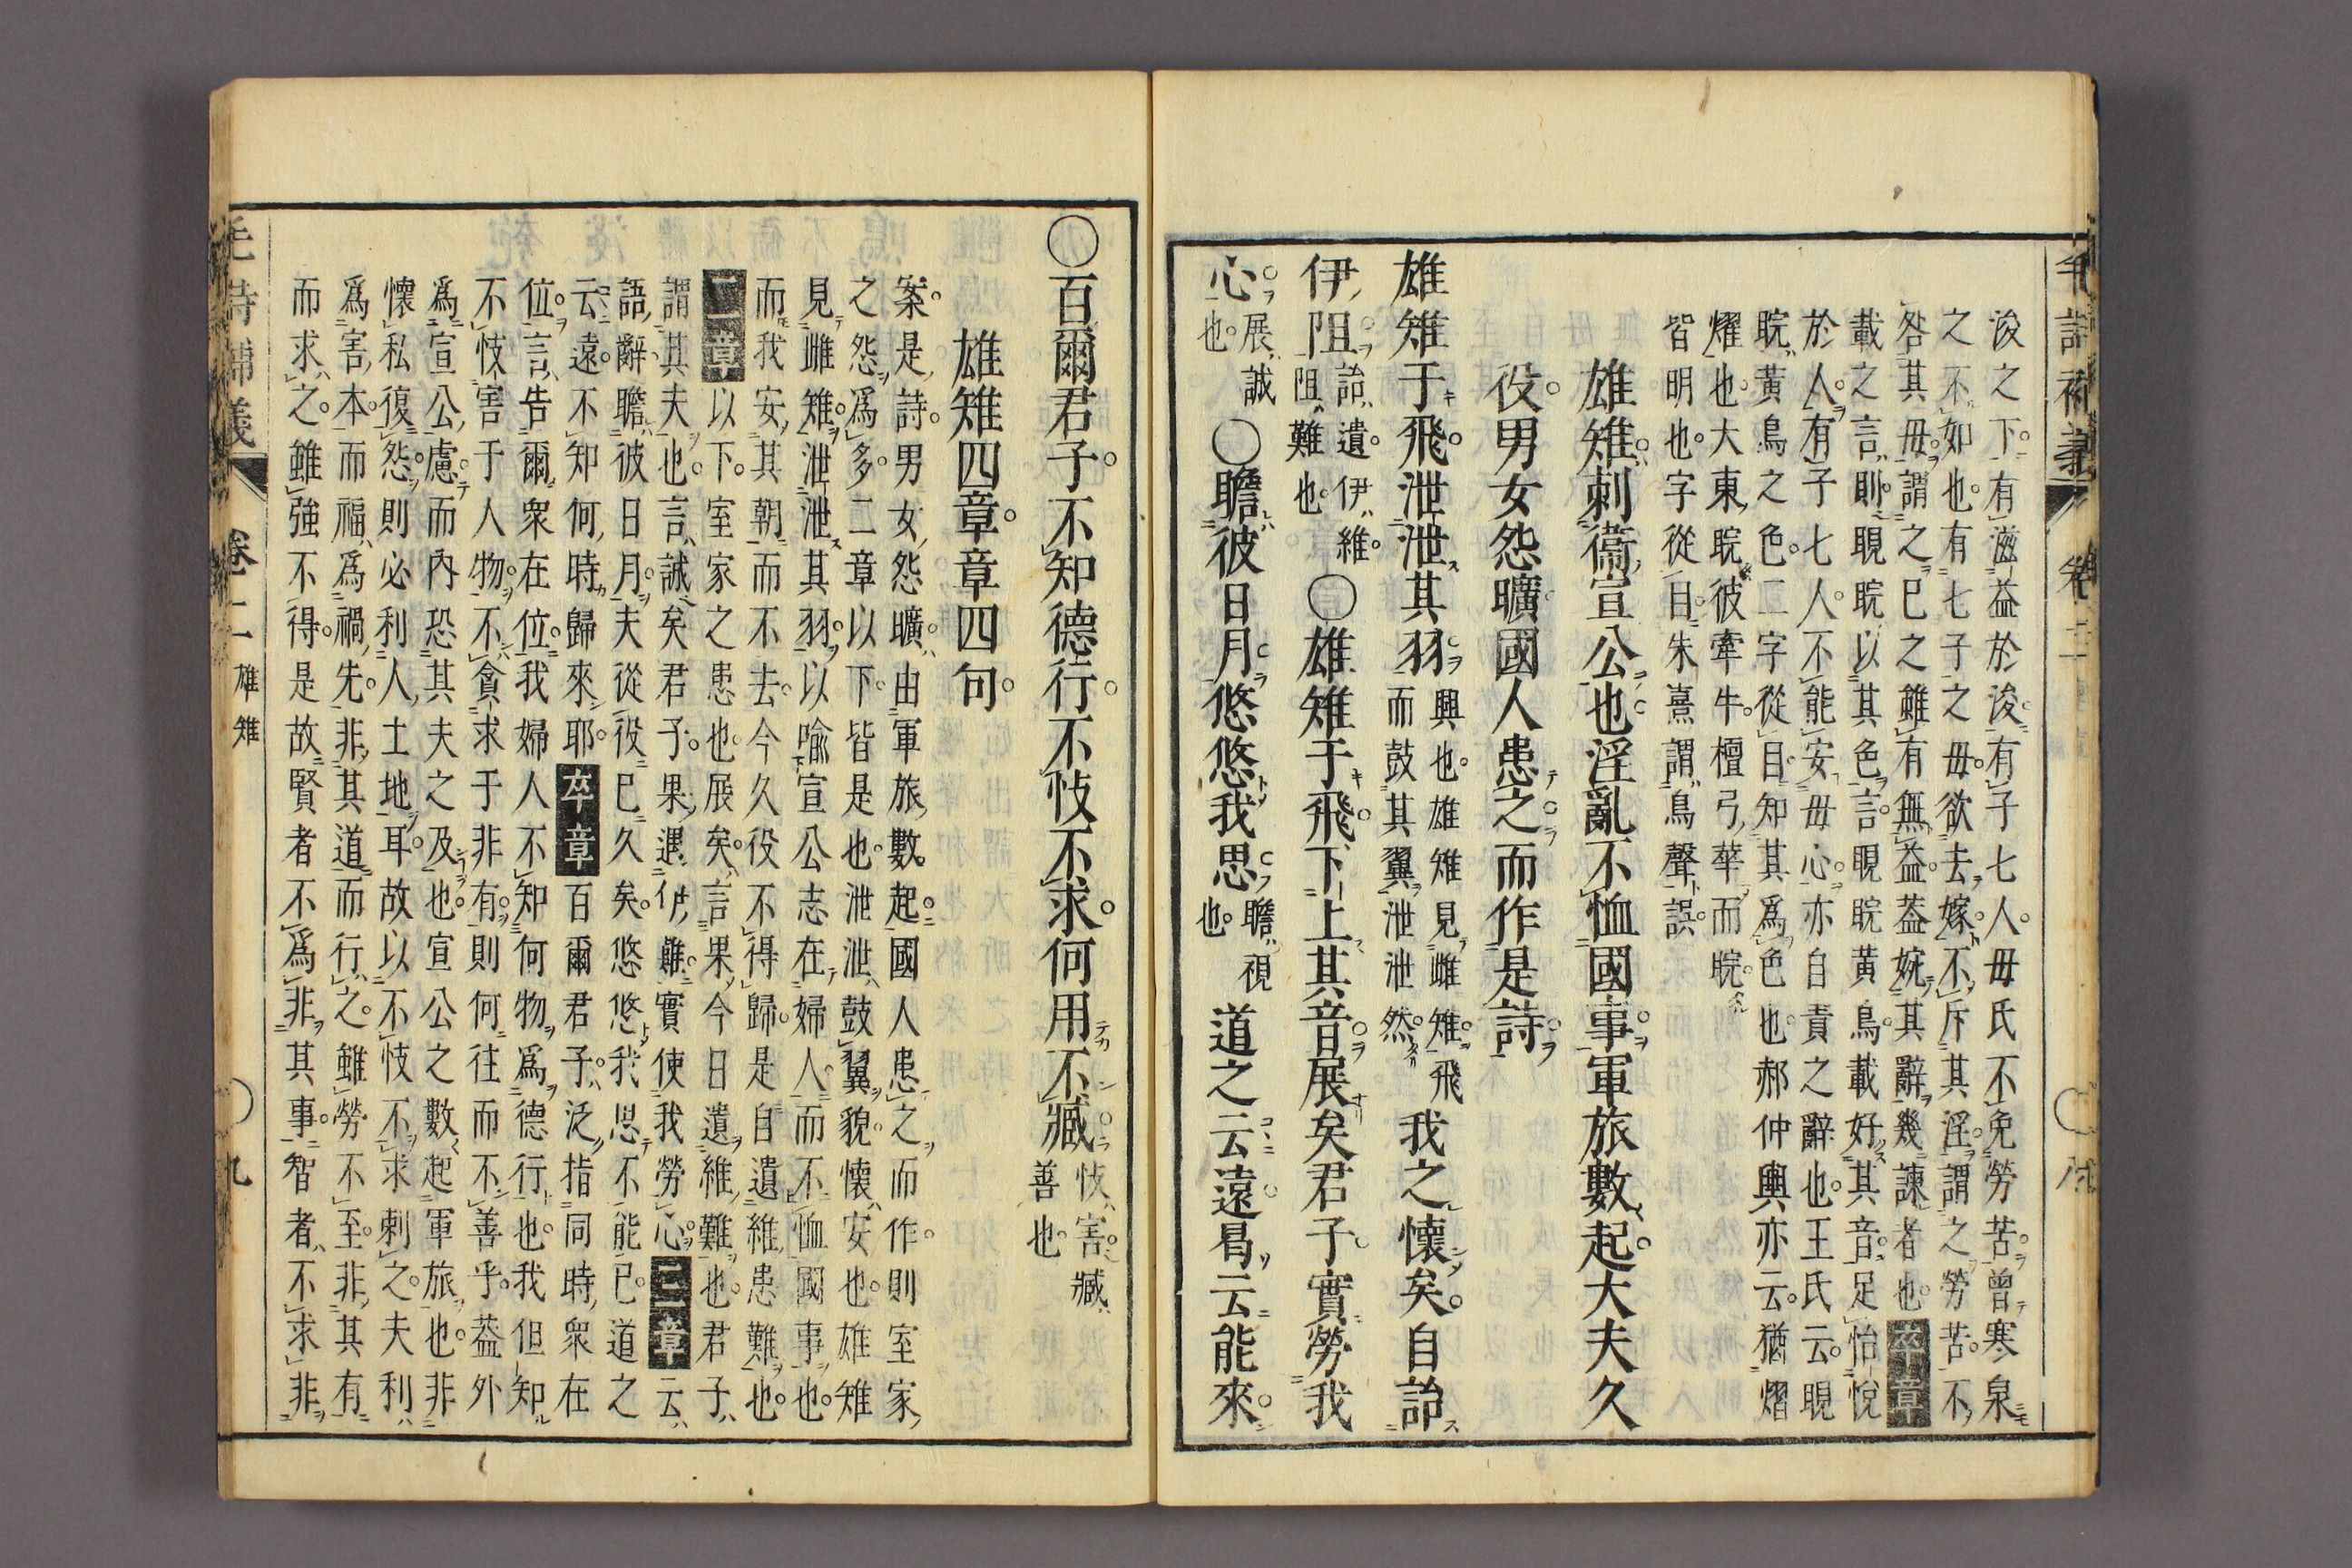 毛詩補義 卷二
浚之下。有滋益於浚。有子七人。毋氏不免勞苦。曾寒泉
之不如也。有七子之毋。欲去嫁。不斥其淫。謂之勞苦。不
咎其毋。謂之巳之雖有無益。葢婉其辭。幾諫者也。卒章
載之言則。睍睆以其色言。睍睆黃鳥。載好其音。足怡悅
於人。有子七人。不能安毋心。亦自責之辭也。王氏云。睍
睆黃鳥之色。二字從目。知其爲色也。郝仲輿亦云。猶熠
燿也。大東。睆彼牽牛。檀弓。華而睆。
皆明也。字從目。朱熹謂鳥聲誤。
雄雉。刺衞宣公也。淫亂不恤國事。軍旅數起。大夫久
役。男女怨曠。國人患之。而作是詩。
雄雉于飛。泄泄其羽 興也。雄雉見雌雉。飛而鼓其翼泄泄然。 我之懷矣。自詒
伊阻。詒遺。伊維。阻難也。〇雄雉于飛。下上其音。展矣君子。實勞我
心。展誠也。〇瞻彼日月。悠悠我思 瞻視也。 道之云遠。曷云能來。
〇百爾君子。不知德行。不忮不求。何用不臧 忮害。臧善也。
雄雉四章。章四句。
案。是詩。男女怨曠。由軍旅數起。國人患之而作。則室家
之怨爲多。二章以下。皆是也。泄泄鼓翼貌。懷安也。雄雉
見雌雉。泄泄其羽。以喩宣公志在婦人。而不恤國事也。
而我安其朝而不去。今久役不得歸。是自遺維患難也。
二章以下。室家之患也。展矣。言果今日遺維難也。君子
謂其夫也。言誠矣君子。果遇此難。實使我勞心。三章云
語辭。瞻彼日月。夫從役巳久矣。悠悠我思不能已。道之
云遠。不知何時歸來耶。卒章百爾君子。泛指同時衆在
位。言告爾衆在位。我婦人不知何物爲德行也。我但知
不忮害于人物。不貪求于非有。則何往而不善乎。葢外
爲宣公慮。而內恐其夫之及也。宣公之數起軍旅也。非
懷私復怨。則必利人土地耳。故以不忮不求刺之。夫利
爲害本。而福爲禍先。非其道而行之。雖勞不至。非其有
而求之。雖強不得。是故賢者不爲非其事。智者不求非
毛詩補義 卷二 雄雉 〇九